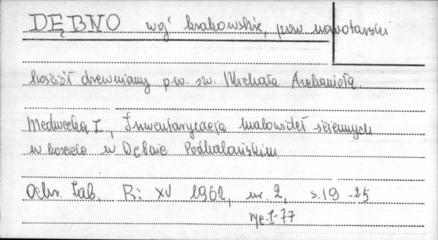 DĘBNO woj. krakowskie, pow. nowotarski
kościół drewniany p.w. św. Michała Archanioła
Medwecka I., Inwentaryzacja malowideł ściennych
w kościele w Dębnie Podhalańskim
Ochr. Zab. R: XV 1962, nr. 2, s. 19-25
ryc. 1-77